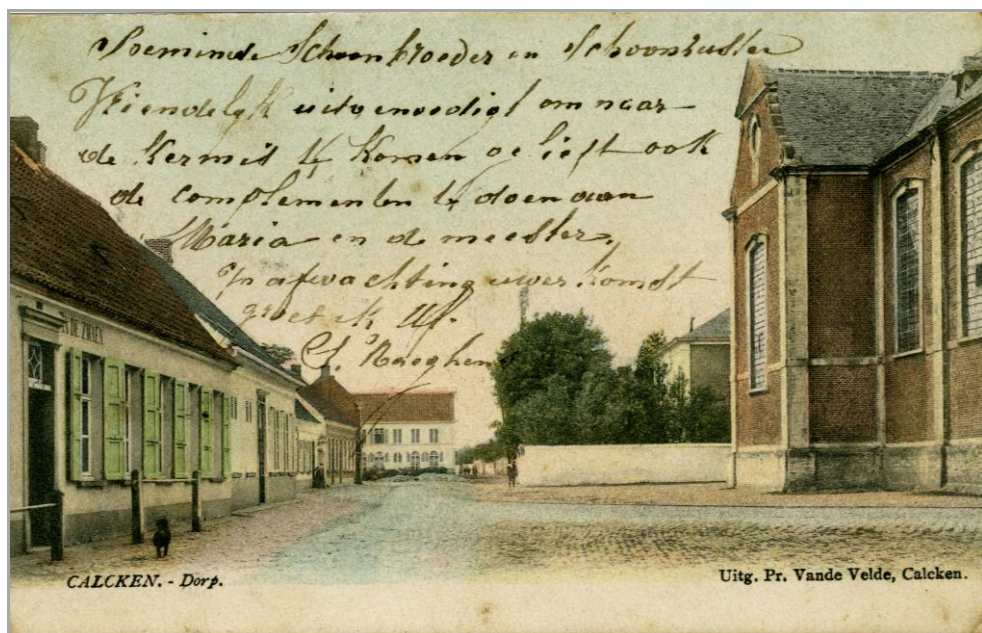 Beminde Schoonbroeder en Schoonzuster
Vriendelyk uitgenoodigt om naar
de Kermis te komen gelieft ook
de complementen te doen aan
Maria en de meester,
In afwachting uwer komst
groet ik Ul.
IN DE ZWAEN
CALCKEN. - Dorp.
Uitg. Pr. Vande Velde, Calcken.